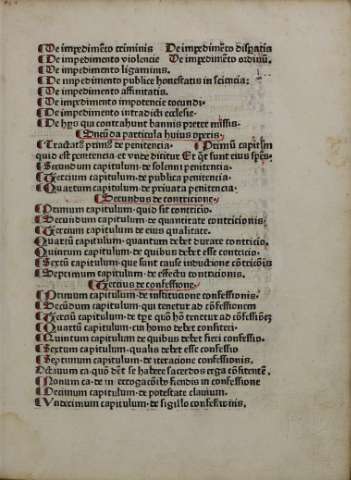 ¶De impedimēto criminis De impedimēto dispatis
¶De impedimento violencie De impedimēto ordinū.
¶De impedimento ligaminis.
¶De impedimento publice honestatis in scientia:
¶De impedimento affinitatis.
¶De impedimento impotencie coeundi.
¶De impedimento interdicti ecclesie.
¶De hys qui contrahunt bannis preter missis.
¶Secūda particula huius operis.
¶Tractatꝰ primꝰ de penitencia. Primū capitlm
quid est penitencia et vnde dicitur Et q̄t sunt eius spēs.
¶Secundum capitulum de solenni penitencia.
¶Tercium capitulum de publica penitencia.
¶Quartum capitulum de priuata penitencia.
¶Secundus de contricione.
¶Primum capitulum. quid sit contricio.
¶Secundum capitulum de quantitate contricionis.
¶Tercium capitulum de eius qualitate.
¶Quartū capitulum. quantum debet durare contricio.
¶Quintum capitulum de quibus debet esse contricio.
¶Sextū capitulum. que sunt cause inductiue cōtriciōis
¶Septimum capitulum. de effectu contricionis.
¶Tercius de confessione.
¶Primum capitulum. de institucione confessionis.
¶Secūdum capitulum. qui tenetur ad cōfessionem
¶Terciū capitulum. de tp̄e quo hō tenetur ad cōfessiōēz
¶Quartū capitulum. cui homo debet confiteri.
¶Quintum capitulum de quibus debet fieri confessio.
¶Sextum capitulum. qualis debet esse confessio
¶Septimum capitulum. de iteracione confessionis.
Octauum ca. quō dēt se habere sacerdos erga cōfitentē.
¶Nonum ca. de interrogaciōibꝰ fiendis in confessione
¶Decimum capitulum. de potestate clauium.
¶Vndecimum capitulum. de sigillo confessionis.